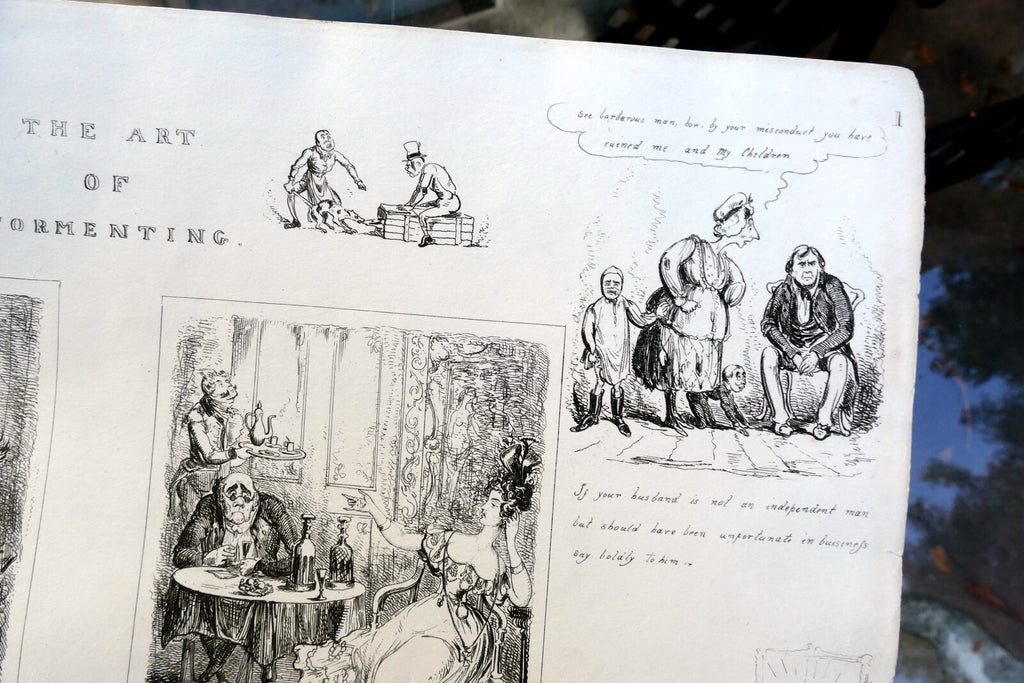 THE ART
OF
TORMENTING.
1
See barbarous man, how, by your misconduct you have
ruined me and My Children
If your husband is not an independent man
but should have been unfortunate in buiseness
say boldly to him.